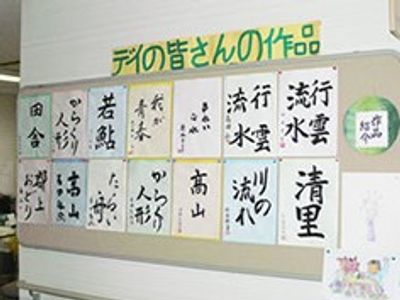 デイの皆さんの作品
作品
紹介
行雲
流水
行雲
流水
我が
青春
若鮎
からくり
人形
田舎
清里
川の
流れ
高山
からくり
人形
たらい
舟
高山
郡上
おどり